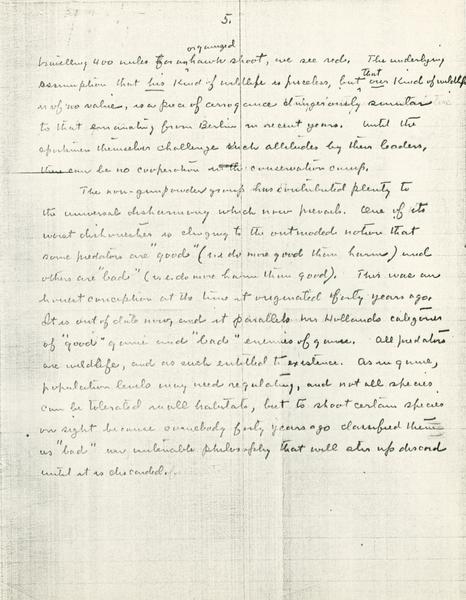 5.
travelling 400 miles for an organized hawk shoot, we see red. The underlying
assumption that his kind of wildlife is priceless, but that our kind of wildlife
is of no value, is a piece of arrogance dangerously similar
to that emanating from Berlin in recent years. Until the
sportsmen themselves challenge such attitudes by their leaders,
there can be no cooperation in the conservation camp.
The non-gunpowder group has contributed plenty to
the universal disharmony which now prevails. One of its
worst dishonesties is clinging to the outmoded notion that
some predators are "good" (i.e. do more good than harm) and
others are "bad" (i.e. do more harm than good). This was an
honest conception at the time it originated forty years ago.
It is out of date now, and it parallels Mr Hollands categories
of "good" game and "bad" enemies of game. All predators
are wildlife, and as such entitled to existence. As in game,
population levels may need regulating, and not all species
can be tolerated in all habitats, but to shoot certain species
on sight because somebody forty years ago classified them
as "bad" is an untenable philosophy that will stir up discord
until it is discarded.